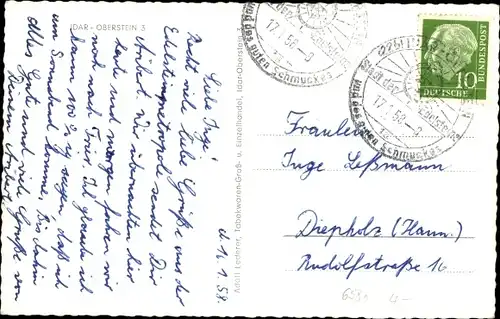 IDAR - OBERSTEIN 3
Ü. 16. 1. 58.
Liebe Inge!
Recht viel liebe Grüße aus der
Edelsteinmetropole sendet Dir
Wir übernachten hier
und morgen fahren wir
noch nach Trier. Ich glaube ich
kann sagen daß ich
am Sonnabend komme. Bis dahin
alles Gute und viele Grüße von
Deinem
Adolf Leyferne, Tabakwaren-Groß- u. Einzelhandel, Idar-Oberstein
17.1.58
Stadt der Edelsteine
und des guten Schmuckes
17.1.58
Stadt der Edelsteine
und des guten Schmuckes
10
DEUTSCHE BUNDESPOST
Fräulein
Inge Leßmann
Diepholz (Hann.)
Rudolfstraße 16